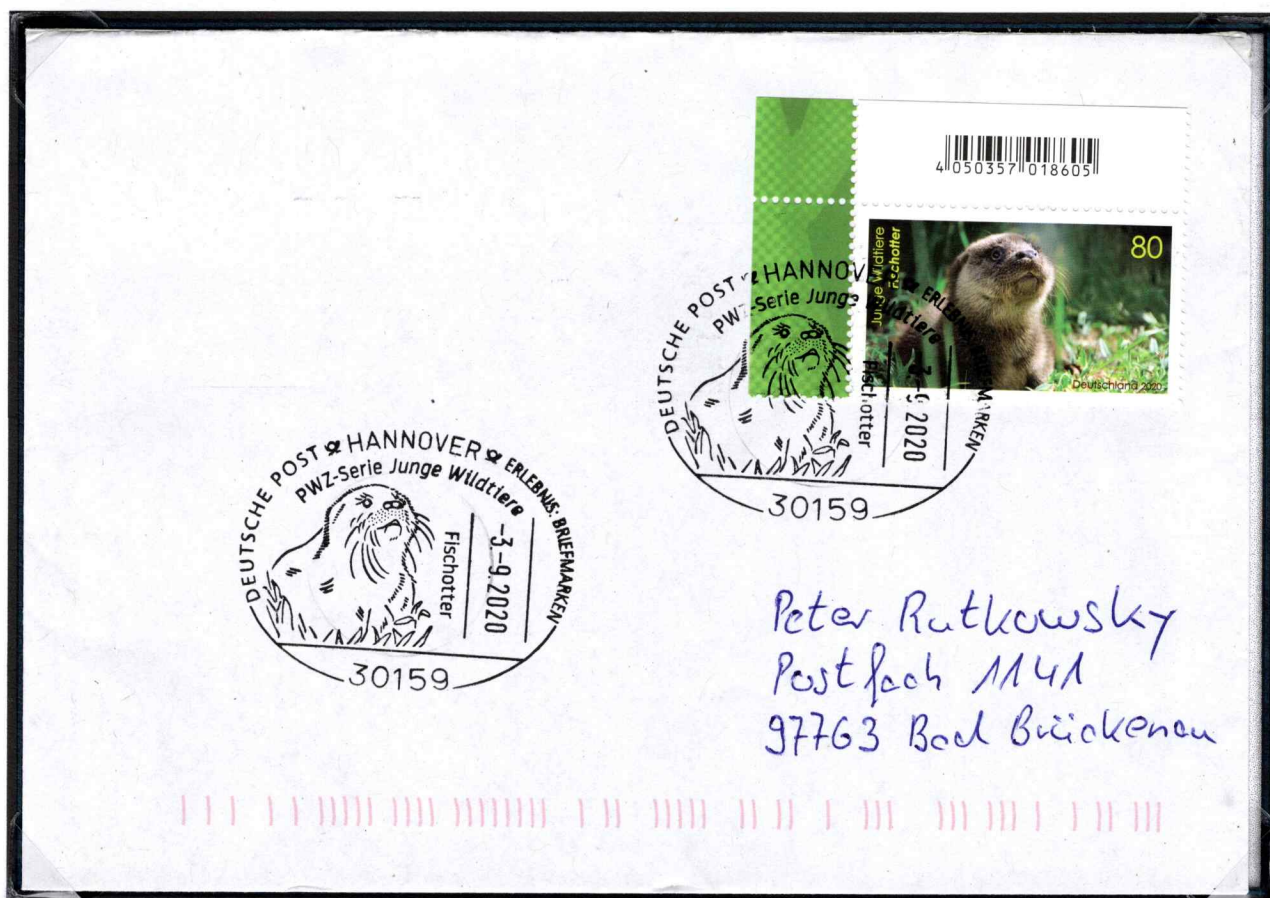 4 050357 018605
Junge Wildtiere
Fischotter
80
Deutschland 2020
DEUTSCHE POST HANNOVER ERLEBNIS: BRIEFMARKEN
PWZ-Serie Junge Wildtiere
Fischotter
-3.-9.2020
30159
DEUTSCHE POST HANNOVER ERLEBNIS: BRIEFMARKEN
PWZ-Serie Junge Wildtiere
Fischotter
-3.-9.2020
30159
Peter Rutkowsky
Postfach 1141
97763 Bad Brückenau